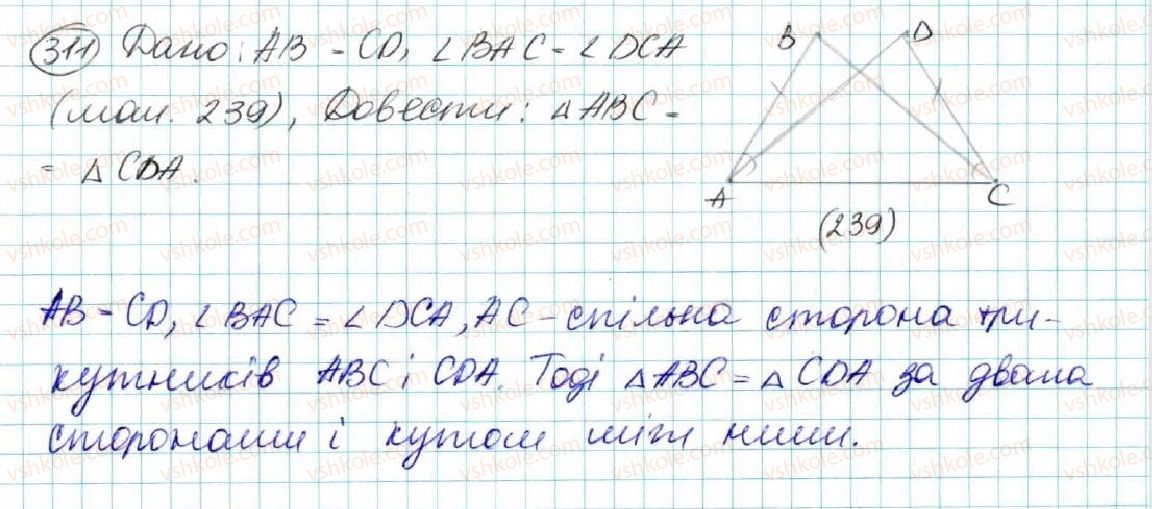 311 Дано: AB = CD, ∠BAC = ∠DCA
(мал. 239), Довести: △ABC =
= △CDA.
B D
A C
(239)
AB = CD, ∠BAC = ∠DCA, AC - спільна сторона три-
кутників ABC і CDA. Тоді △ABC = △CDA за двома
сторонами і кутом між ними.
vshkole.com